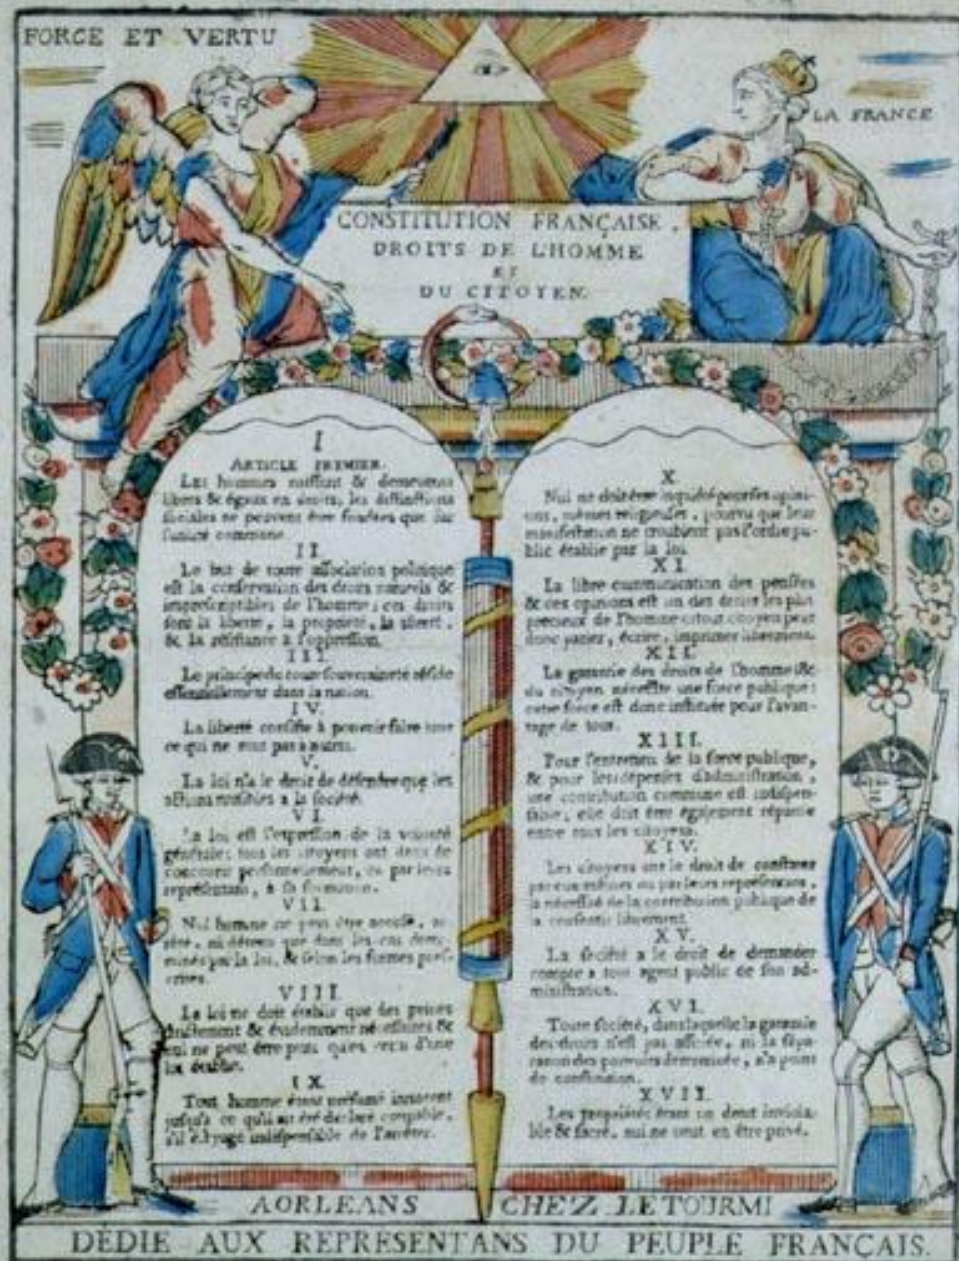 FORCE ET VERTU
LA FRANCE
CONSTITUTION FRANÇAISE,
DROITS DE L'HOMME
ET
DU CITOYEN.
I
ARTICLE PREMIER.
Les hommes naissent & demeurent
libres & égaux en droits, les distinctions
sociales ne peuvent être fondées que sur
l'utilité commune
II
Le but de toute association politique
est la conservation des droits naturels &
imprescriptibles de l'homme; ces droits
sont la liberté, la propriété, la sûreté,
& la résistance à l'oppression.
III
Le principe de toute souveraineté réside
essentiellement dans la nation.
IV.
La liberté consiste à pouvoir faire tout
ce qui ne nuit pas à autrui.
V.
La loi n'a le droit de défendre que les
actions nuisibles à la société.
VI
La loi est l'expression de la volonté
générale; tous les citoyens ont droit de
concourir personnellement, ou par leurs
représentans, à sa formation.
VII
Nul homme ne peut être accusé, ar-
rêté, ni détenu que dans les cas déter-
minés par la loi, & selon les formes pres-
crites.
VIII
La loi ne doit établir que des peines
strictement & évidemment nécessaires &
nul ne peut être puni qu'en vertu d'une
loi établie.
IX
Tout homme étant présumé innocent
jusqu'à ce qu'il ait été déclaré coupable,
s'il est jugé indispensable de l'arrêter.
X
Nul ne doit être inquiété pour ses opini-
ons, mêmes religieuses, pourvu que leur
manifestation ne troublent pas l'ordre pu-
blic établie par la loi.
XI.
La libre communication des pensées
& des opinions est un des droits les plus
précieux de l'homme; tout citoyen peut
donc parler, écrire, imprimer librement.
XII.
La garantie des droits de l'homme &
du citoyen nécessite une force publique:
cette force est donc instituée pour l'avan-
tage de tous.
XIII.
Pour l'entretien de la force publique,
& pour les dépenses d'administration,
une contribution commune est indispen-
sable; elle doit être également répartie
entre tous les citoyens.
XIV.
Les citoyens ont le droit de constater
par eux mêmes ou par leurs représentans,
la nécessité de la contribution publique de
la consentir librement.
XV.
La société a le droit de demander
compte à tout agent public de son ad-
ministration.
XVI.
Toute société, dans laquelle la garantie
des droits n'est pas assurée, ni la sépa-
ration des pouvoirs déterminée, n'a point
de constitution.
XVII.
Les propriétés étant un droit inviola-
ble & sacré, nul ne peut en être privé.
A ORLEANS CHEZ LETOURMI
DÉDIÉ AUX REPRÉSENTANS DU PEUPLE FRANÇAIS.